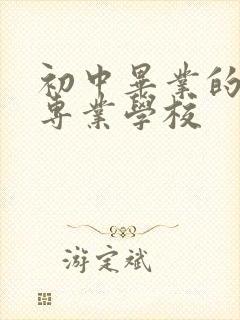 初中畢業的
專業學校
游定斌